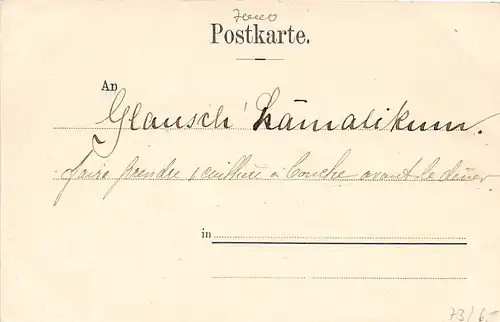 Postkarte.
An
Glausch' Hämatikum.
faire prendre 1 cuillère à bouche avant le dîner
in
73/6.-